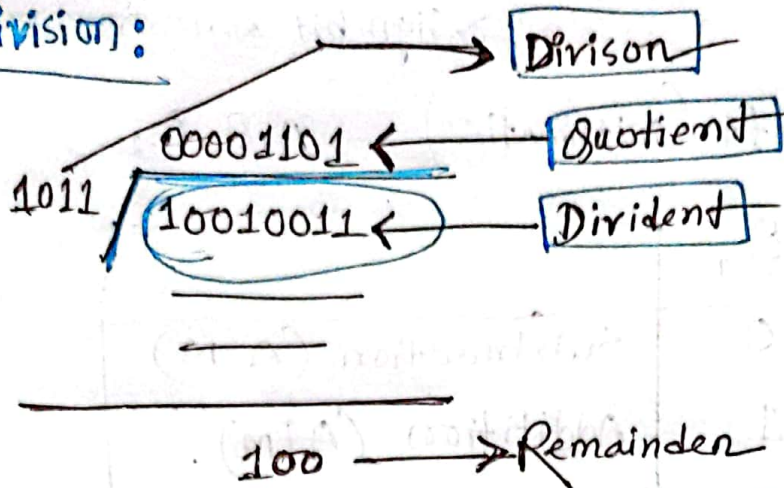 ivision:
Divison
00001101 Quotient
1011 10010011 Divident
100 Remainder